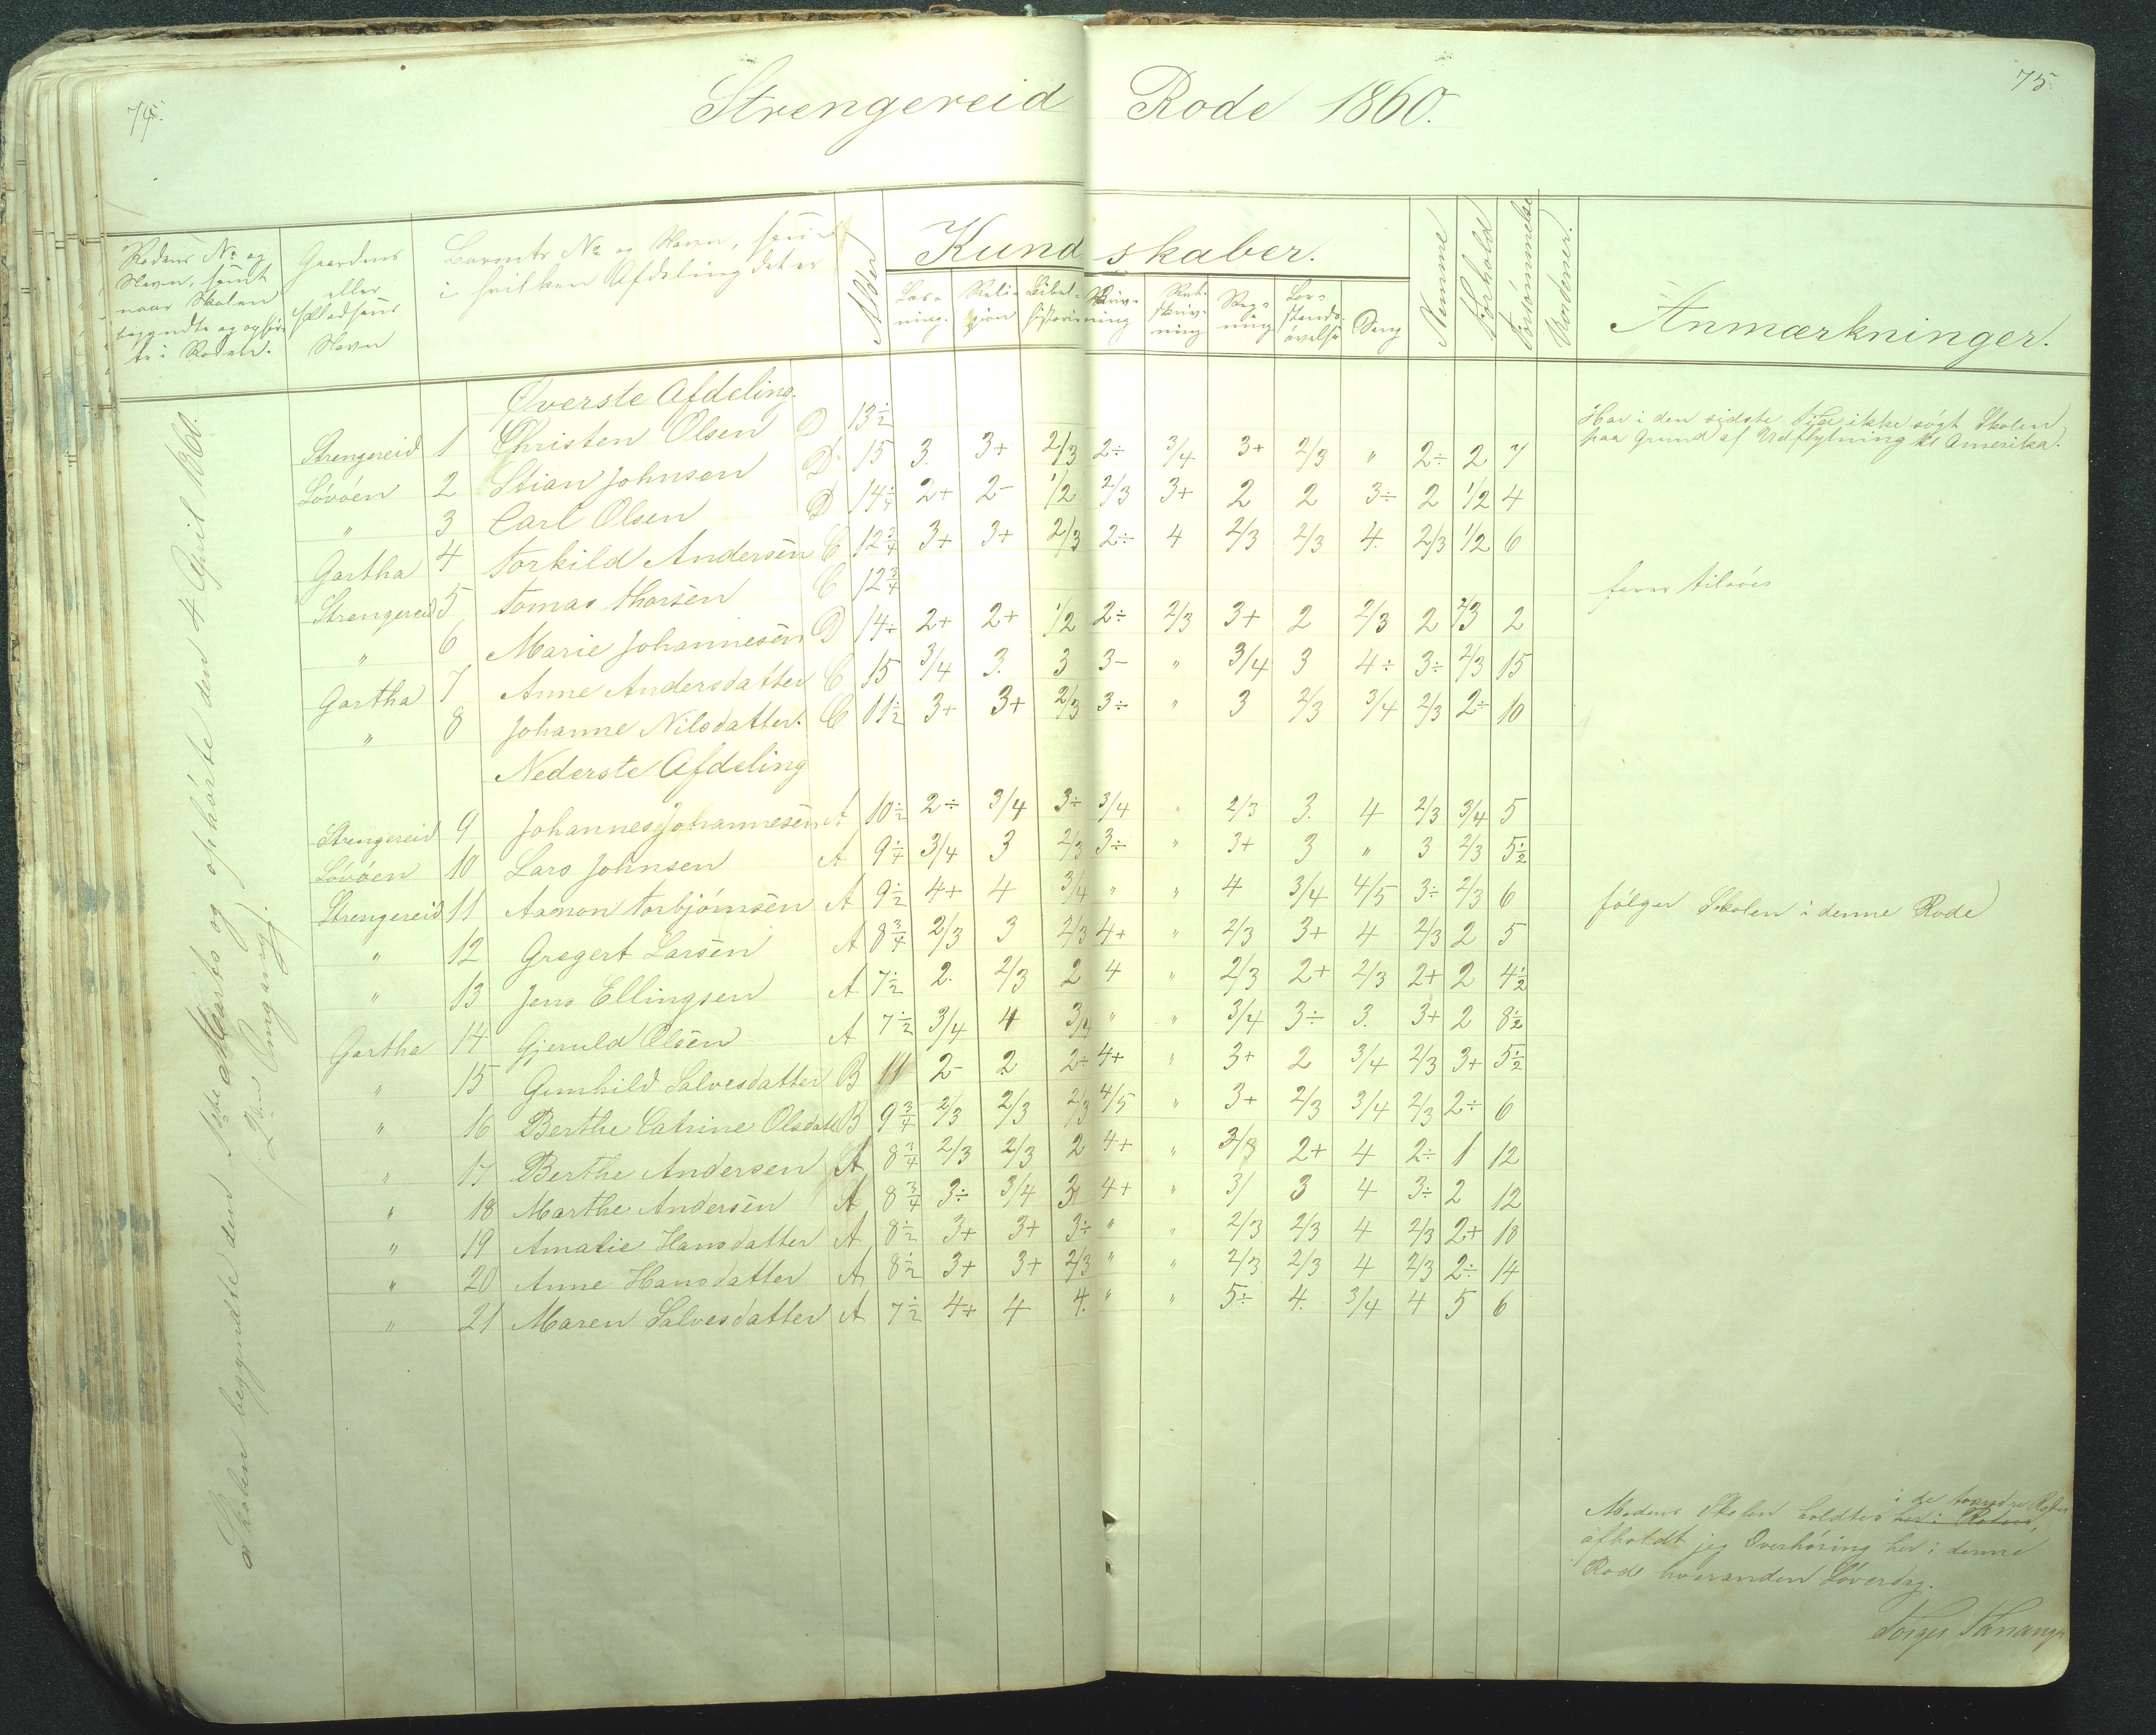 74.
75.
Strengereid Rode 1860.
Rodens No og Navn, samt naar Skolen begyndte og ophør-te i Roden.
Gaardens eller Pladsens Navn
Barnets No og Navn, samt i hvilken Afdeling det er
Alder
Kundskaber.
Læs-ning.
Reli-gion
Bibel-historie
Skriv-ning
Ret-skriv-ning
Reg-ning
For-stands-øvelse
Sang
Nemme
Forhold
Forsømmelse
Moderner.
Anmærkninger.
Skolen begyndte den 1ste Marts og ophørte den 4 April 1860.
(2den Omgang).
Øverste Afdeling.
Strengereid 1 Christen Olsen D 13½
Har i den sidste Tid ikke søgt Skolen
paa Grund af Udflytning til Amerika.
Lövöen 2 Stian Johnsen D 15 3. 3+ 2/3 2÷ 3/4 3+ 2/3 " 2÷ 2 7
" 3 Carl Olsen D 14¼ 2+ 2- 1/2 2/3 3+ 2 2 3÷ 2 1/2 4
Gartha 4 Torkild Andersen C 12¾ 3+ 3+ 2/3 2÷ 4 2/3 2/3 4. 2/3 1/2 6
Strengereid 5 Tomas Thorsen C 12¾
farer tilsøes
" 6 Marie Johannesen D 14½ 2+ 2+ 1/2 2÷ 2/3 3+ 2 2/3 2 2/3 2
Gartha 7 Anne Andersdatter C 15 3/4 3. 3 3- " 3/4 3 4÷ 3÷ 2/3 15
" 8 Johanne Nilsdatter. C 11½ 3+ 3+ 2/3 3÷ " 3 2/3 3/4 2/3 2÷ 10
Nederste Afdeling
Strengereid 9 Johannes Johannesen A 10½ 2÷ 3/4 3÷ 3/4 " 2/3 3. 4 2/3 3/4 5
Lövöen 10 Lars Johnsen A 9¼ 3/4 3 2/3 3÷ " 3+ 3 " 3 2/3 5½
Strengereid 11 Aamon Torbjörnsen A 9½ 4+ 4 3/4 " " 4 3/4 4/5 3÷ 2/3 6
følger Skolen i denne Rode
" 12 Gregert Larsen A 8¾ 2/3 3 2/3 4+ " 2/3 3+ 4 2/3 2 5
" 13 Jens Ellingsen A 7½ 2. 2/3 2 4 " 2/3 2+ 2/3 2+ 2 4½
Gartha 14 Gjeruld Olsen A 7½ 3/4 4 3/4 " " 3/4 3÷ 3. 3+ 2 8½
" 15 Gunhild Salvesdatter B 11 2- 2 2÷ 4+ " 3+ 2 3/4 2/3 3+ 5½
" 16 Berthe Catrine Olsdatt B 9¾ 2/3 2/3 2/3 4/5 " 3+ 2/3 3/4 2/3 2÷ 6
" 17 Berthe Andersen A 8¾ 2/3 2/3 2 4+ " 3/8 2+ 4 2÷ 1 12
" 18 Marthe Andersen A 8¾ 3÷ 3/4 3 4+ " 3/ 3 4 3÷ 2 12
" 19 Amalie Hansdatter A 8½ 3+ 3+ 3÷ " " 2/3 2/3 4 2/3 2+ 18
" 20 Anne Hansdatter A 8½ 3+ 3+ 2/3 " " 2/3 2/3 4 2/3 2÷ 14
" 21 Maren Salvesdatter A 7½ 4+ 4 4. " " 5÷ 4. 3/4 4 5 6
i de tvende Roder
Medens Skolen holdtes her i Roden,
afholdt jeg Overhøring her i denne
Rode hveranden Löverdag.